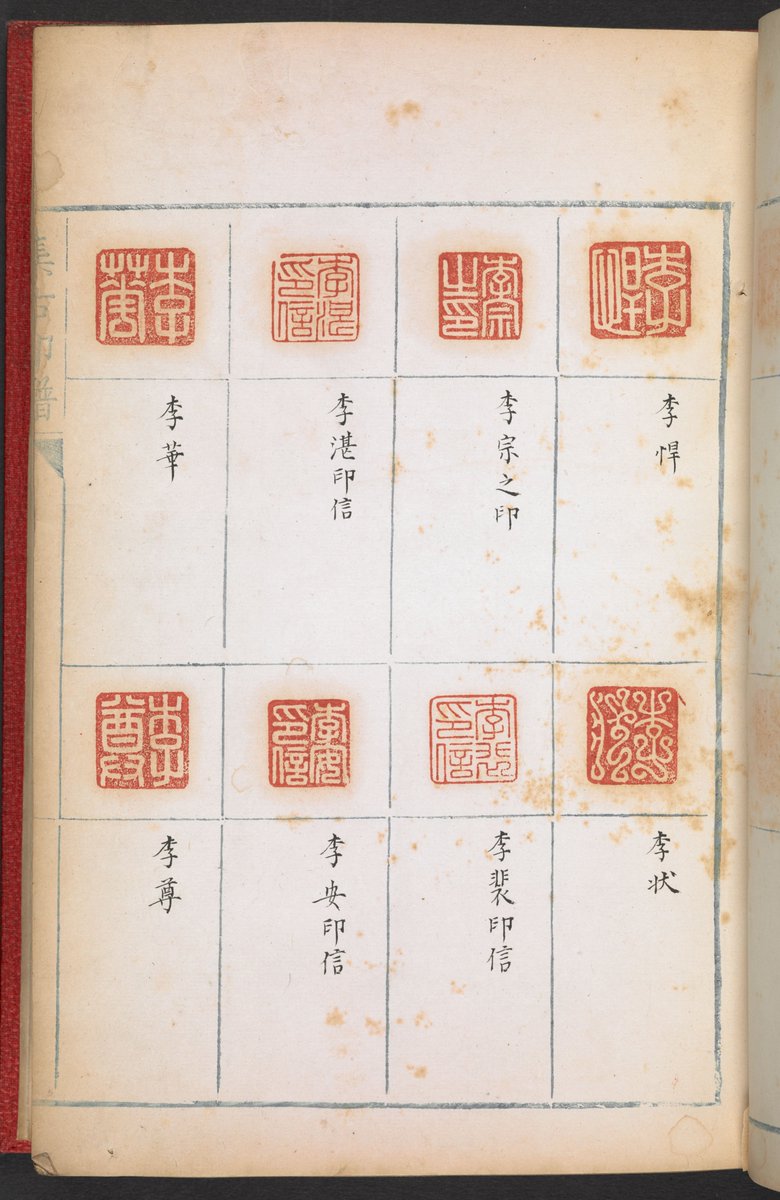 李悍
李宗之印
李湛印信
李華
李状
李裴印信
李安印信
李尊
集古印譜